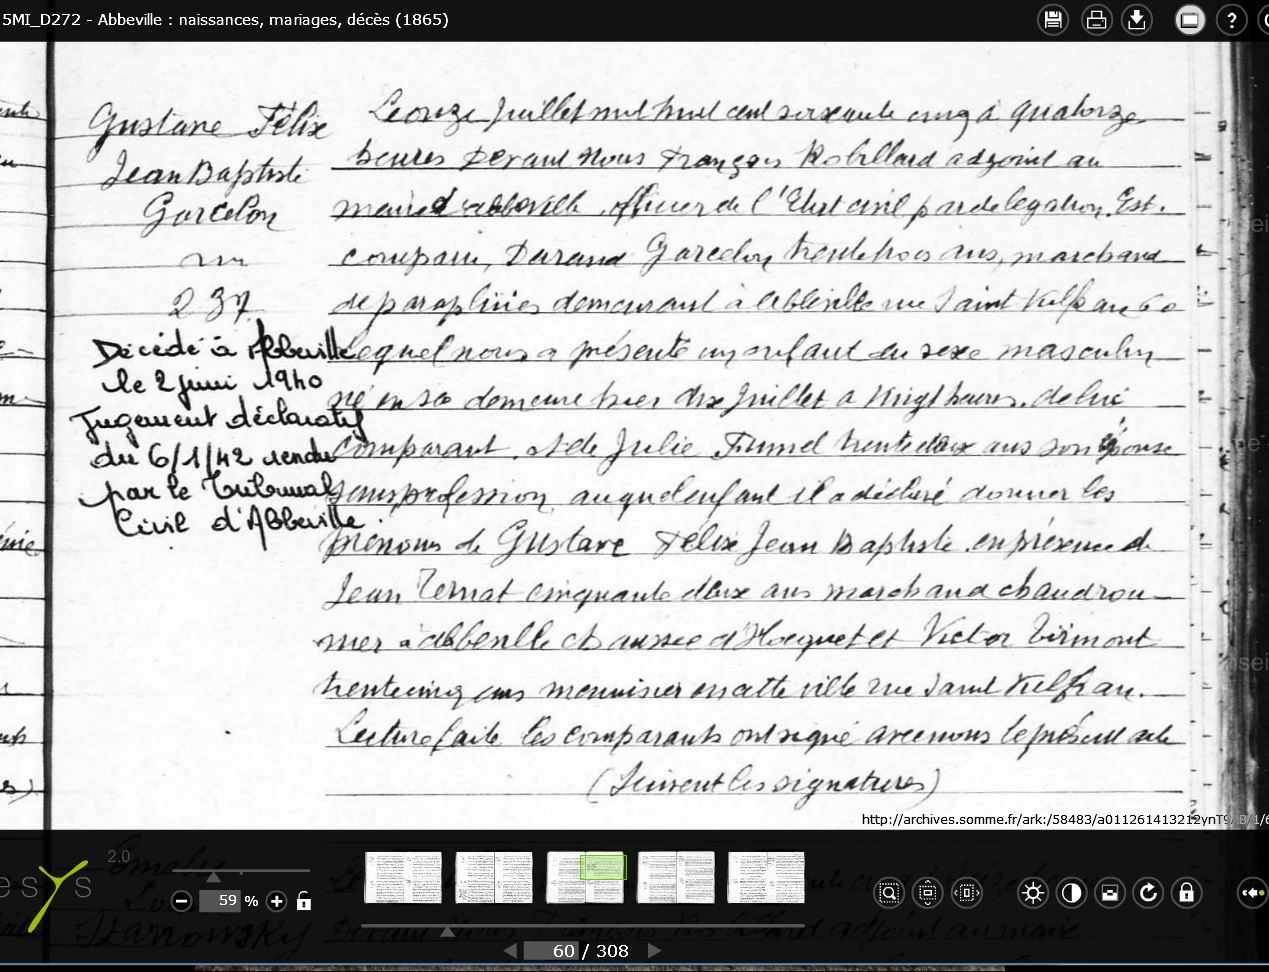 5MI_D272 - Abbeville : naissances, mariages, décès (1865)
Gustave Félix
Jean Baptiste
Garcelon
237
Décédé à Abbeville
le 2 juin 1940
Jugement déclaratif
du 6/1/42 rendu
par le Tribunal
Civil d'Abbeville.
Le onze Juillet mil huit cent soixante cinq à quatorze
heures Devant Nous François Robillard adjoint au
maire d'abbeville, officier de l'Etat civil par délégation. Est.
comparu, Durand Garcelon, trente trois ans, marchand
de parapluies demeurant à abbeville rue Saint Vulfran 60
Lequel nous a présenté un enfant du sexe masculin
né en sa demeure hier dix Juillet a Vingt heures, de lui
Comparant, et de Julie trente deux ans son épouse
sans profession, auquel enfant il a déclaré donner les
prénoms de Gustave Félix Jean Baptiste. en présence de
Jean cinquante deux ans marchand chaudron-
nier à abbeville chaussée d'Hocquet et Victor
trente cinq ans menuisier en cette ville rue Saint Vulfran.
Lecture faite les comparants ont signé avec nous le présent acte
(Suivent les signatures)
http://archives.somme.fr/ark:/58483/a011261413212ynT9
2.0
59 %
60 / 308